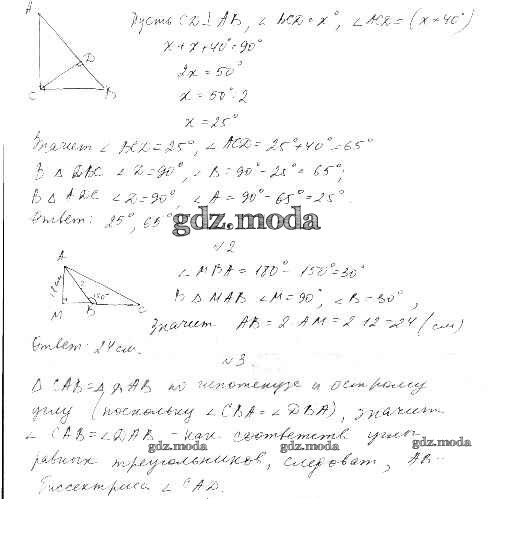 A
D
C
B
Пусть CD ⊥ AB, ∠ BCD = x°, ∠ ACD = (x+40°)
x + x + 40° = 90°
2x = 50°
x = 50 : 2
x = 25°
Значит ∠ BCD = 25°, ∠ ACD = 25° + 40° = 65°
В △ DBC ∠ D = 90°, ∠ B = 90° - 25° = 65°;
В △ ADC ∠ D = 90°, ∠ A = 90° - 65° = 25°.
Ответ: 25°, 65°
gdz.moda
№2
A
12 см
150°
M
B
C
∠ MBA = 180° - 150° = 30°
В △ MAB ∠ M = 90°, ∠ B = 30°,
Значит AB = 2 AM = 2·12 = 24 (см)
Ответ: 24 см.
№3
△ CAB = △ DAB по гипотенузе и острому
углу (поскольку ∠ CBA = ∠ DBA), значит
∠ CAB = ∠ DAB - как соответств углы
gdz.moda gdz.moda
равных треугольников, следоват, AB -
gdz.moda
биссектриса ∠ CAD.